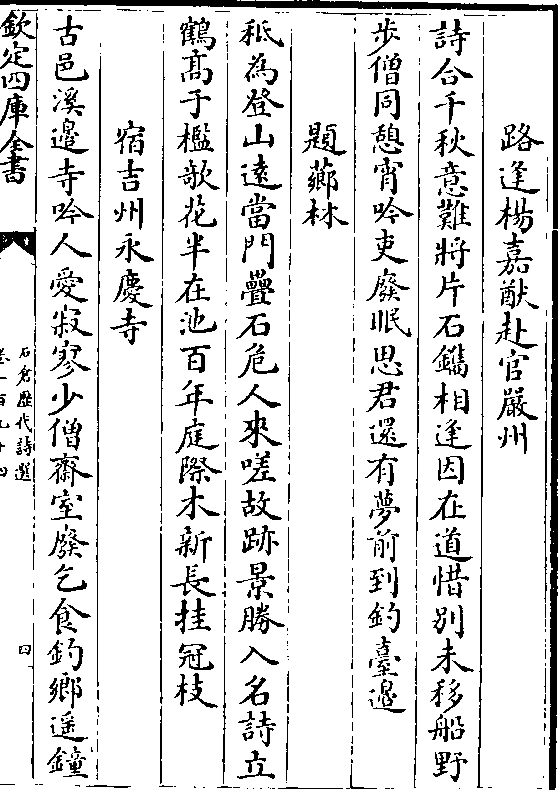 路逢楊嘉猷赴官嚴州
詩合千秋意難將片石鐫相逢因在道惜別未移船野
步僧同憩宵吟吏廢眠思君還有夢前到釣臺邉
題薌林
秪為登山遠當門疊石危人來嗟故跡景勝入名詩立
鶴髙于檻欹花半在池百年庭際木新長挂冠枝
宿吉州永慶寺
古邑溪邉寺吟人愛寂寥少僧齋室廢乞食釣鄉遥鐘
欽定四庫全書
石倉歴代詩選
卷一百九十四
四